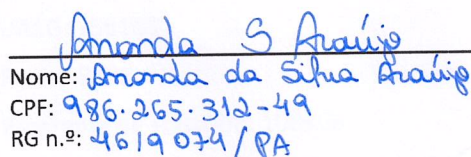 Amanda S Araújo
Nome: Amanda da Silva Araújo
CPF: 986.265.312-49
RG n.º: 4619074/PA